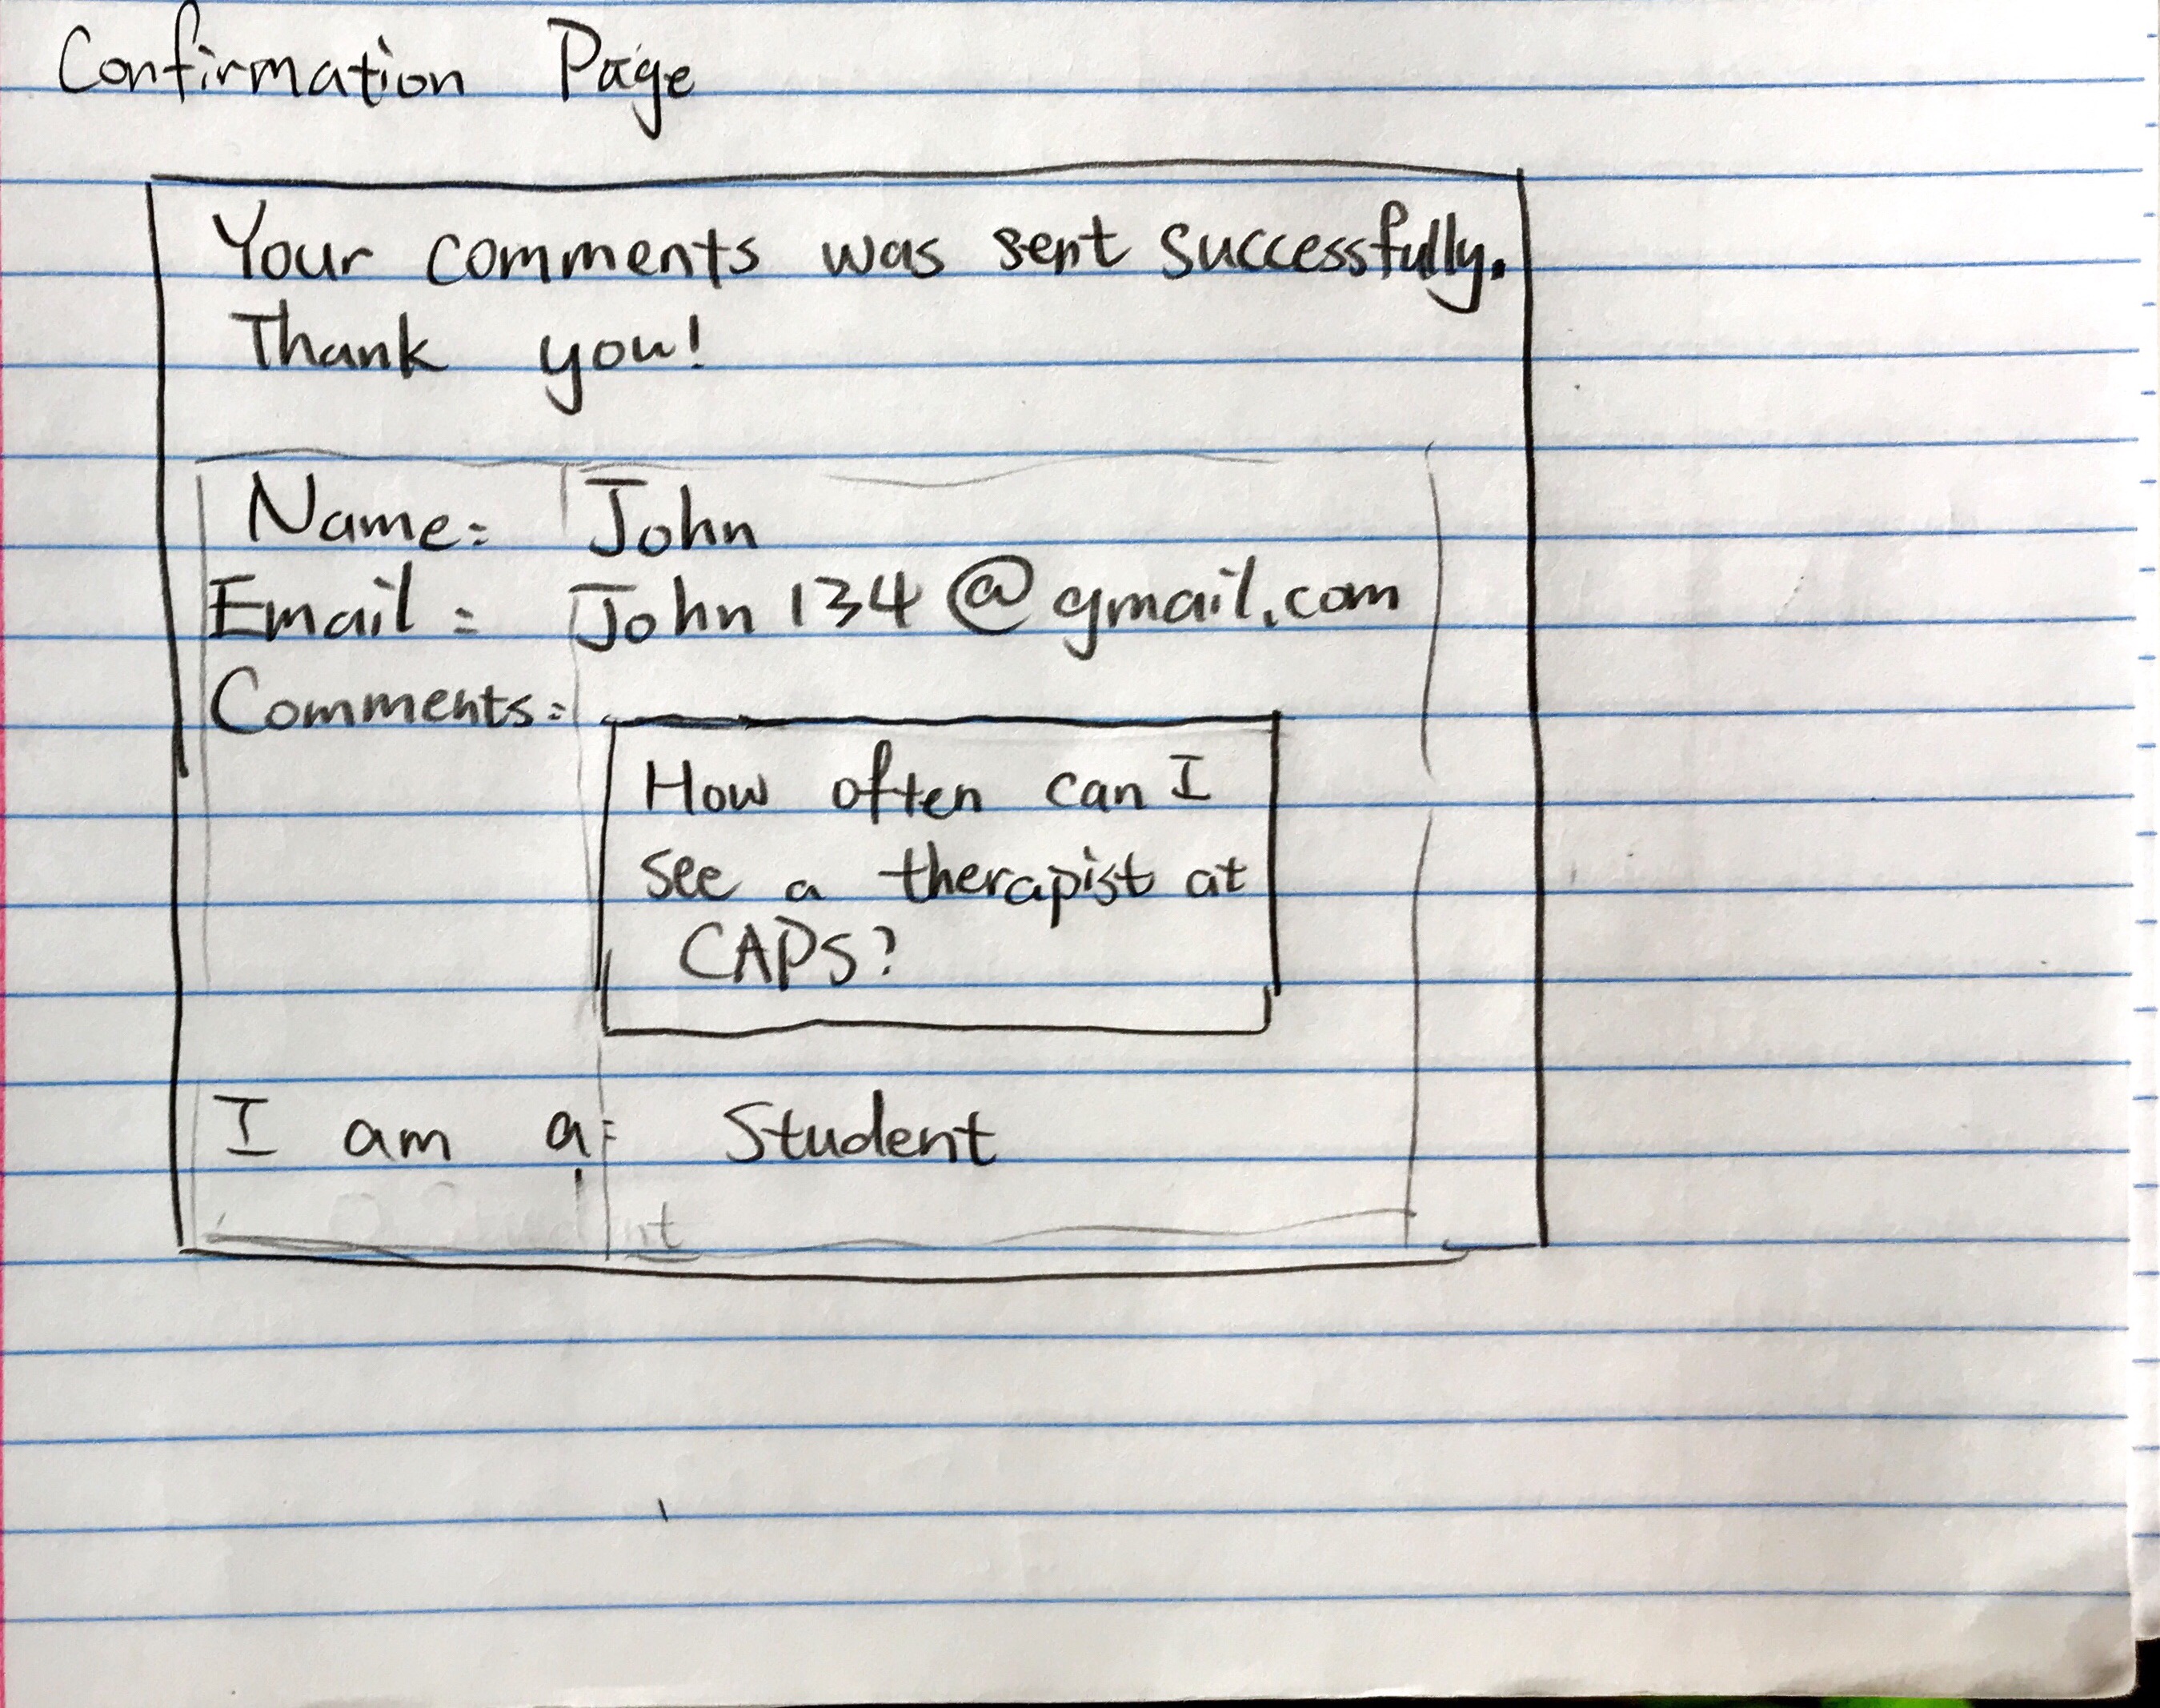 Confirmation Page
Your comments was sent successfully.
Thank you!
Name: John
Email: John134@gmail.com
Comments:
How often can I
see a therapist at
CAPS?
I am a: Student